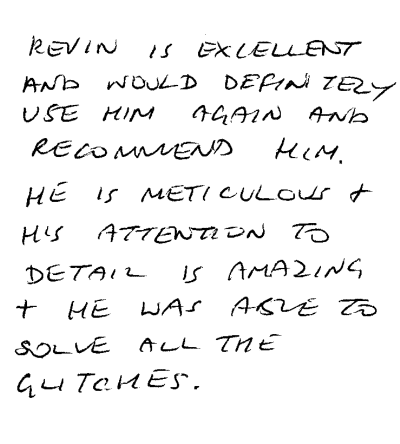 REVIN IS EXCELLENT
AND WOULD DEFINITELY
USE HIM AGAIN AND
RECOMMEND HIM.
HE IS METICULOUS +
HIS ATTENTION TO
DETAIL IS AMAZING
+ HE WAS ABLE TO
SOLVE ALL THE
GLITCHES.